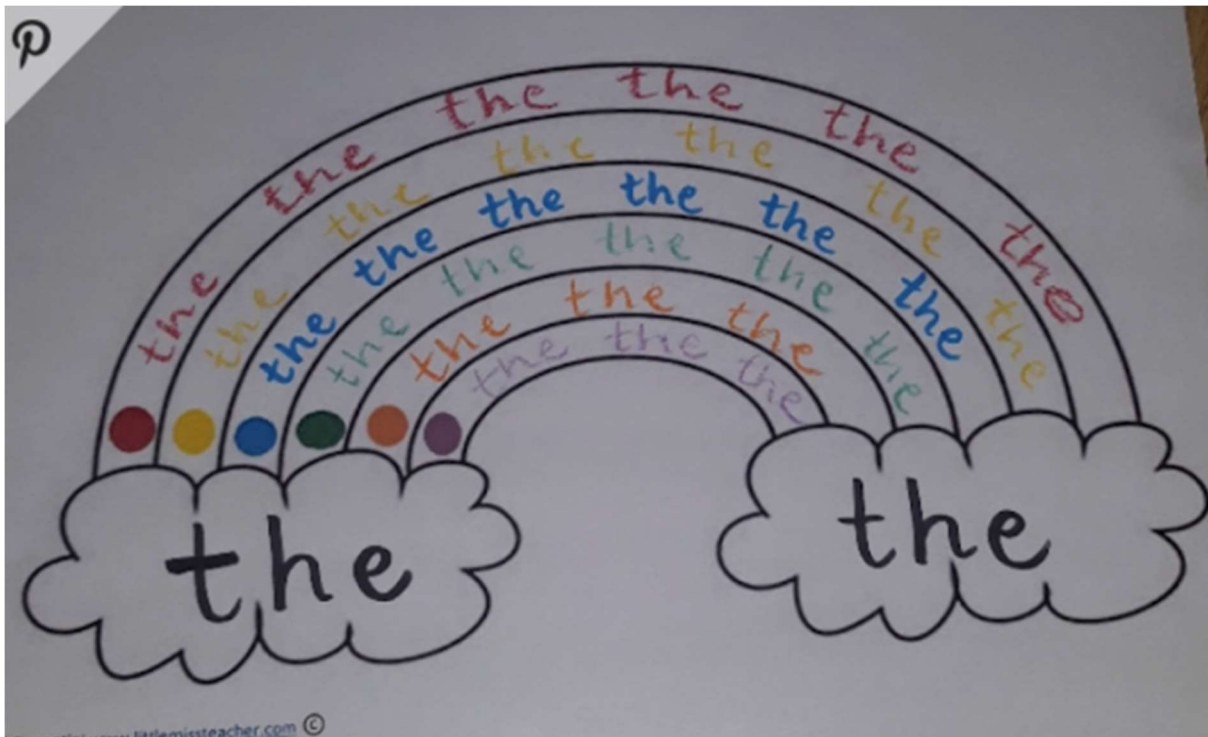 the the the the the the
the the the the the the
the the the the the the
the the the the the
the the the
the the the
the the
www.littlemissteacher.com ©